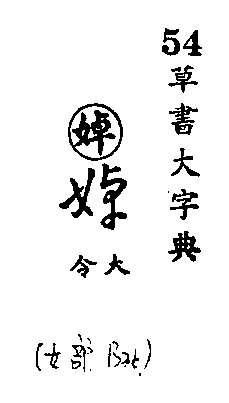 54
草書大字典
婥
婥
大令
(女部